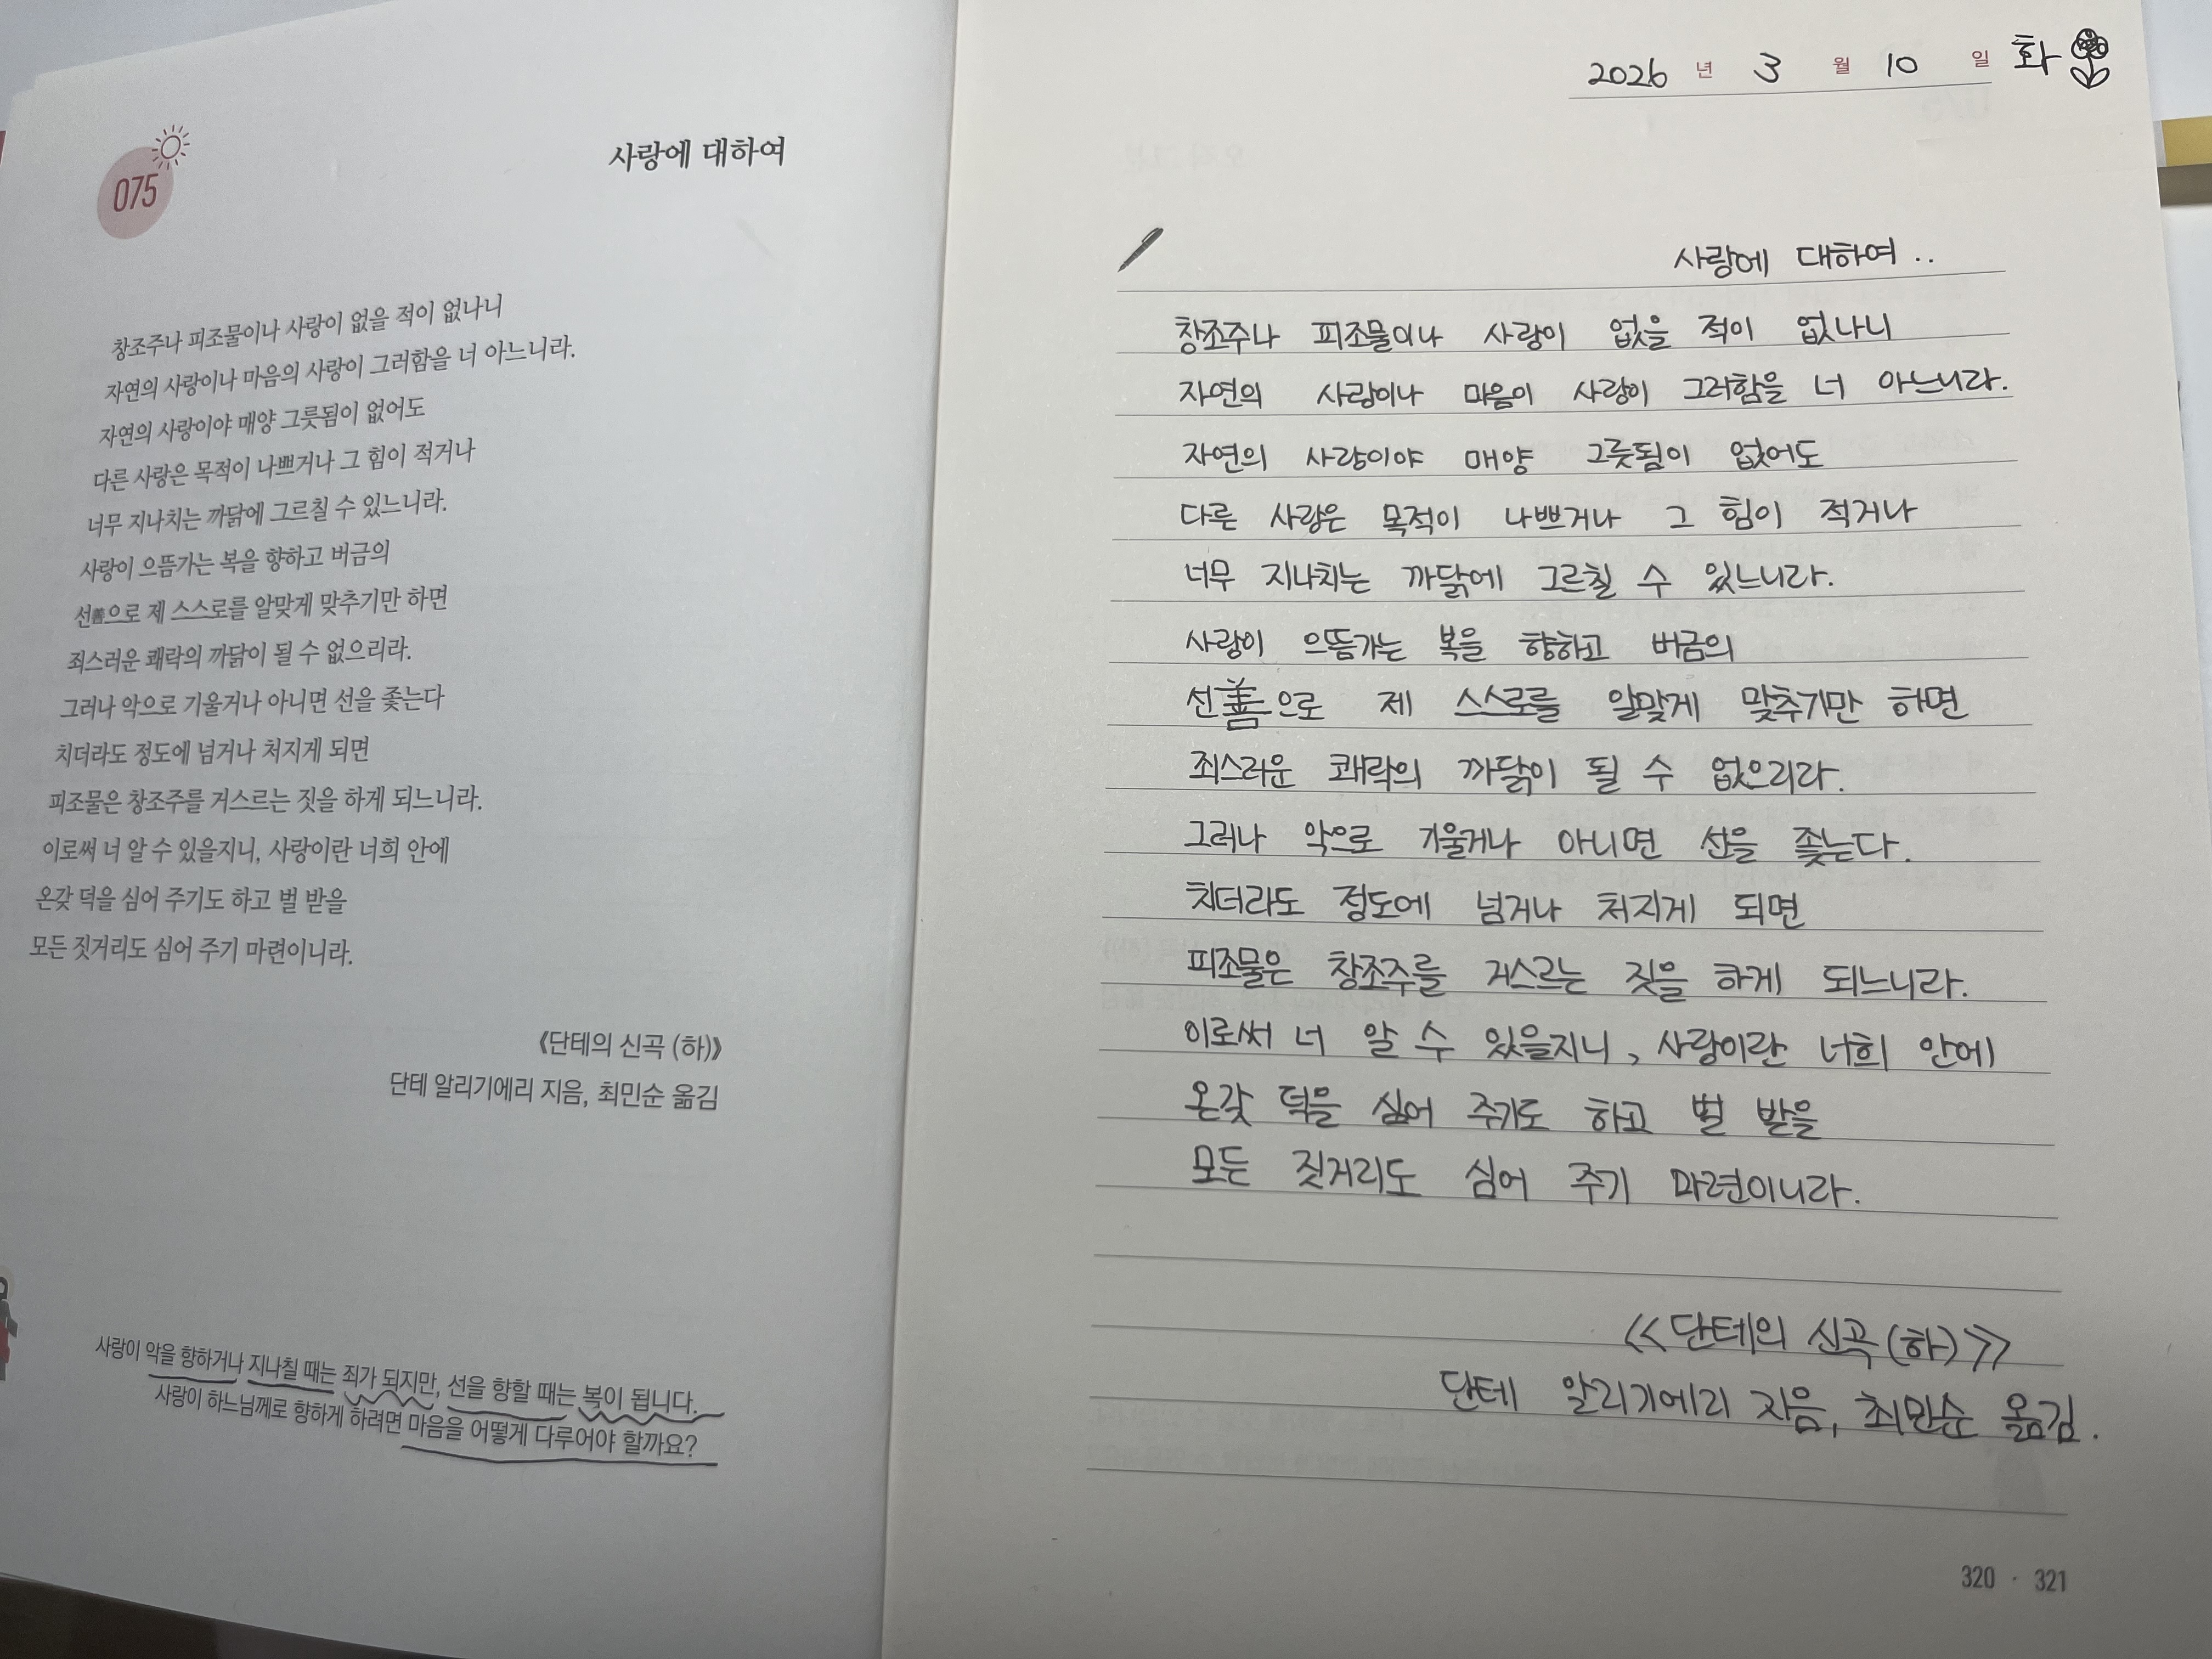 075
사랑에 대하여
창조주나 피조물이나 사랑이 없을 적이 없나니
자연의 사랑이나 마음의 사랑이 그러함을 너 아느니라.
자연의 사랑이야 매양 그릇됨이 없어도
다른 사랑은 목적이 나쁘거나 그 힘이 적거나
너무 지나치는 까닭에 그르칠 수 있느니라.
사랑이 으뜸가는 복을 향하고 버금의
선善으로 제 스스로를 알맞게 맞추기만 하면
죄스러운 쾌락의 까닭이 될 수 없으리라.
그러나 악으로 기울거나 아니면 선을 좇는다
치더라도 정도에 넘거나 처지게 되면
피조물은 창조주를 거스르는 짓을 하게 되느니라.
이로써 너 알 수 있을지니, 사랑이란 너희 안에
온갖 덕을 심어 주기도 하고 벌 받을
모든 짓거리도 심어 주기 마련이니라.
《단테의 신곡 (하)》
단테 알리기에리 지음, 최민순 옮김
사랑이 악을 향하거나 지나칠 때는 죄가 되지만, 선을 향할 때는 복이 됩니다.
사랑이 하느님께로 향하게 하려면 마음을 어떻게 다루어야 할까요?
2026 년 3 월 10 일 화
사랑에 대하여..
창조주나 피조물이나 사랑이 없을 적이 없나니
자연의 사랑이나 마음이 사랑이 그러함을 너 아느니라.
자연의 사랑이야 매양 그릇됨이 없어도
다른 사랑은 목적이 나쁘거나 그 힘이 적거나
너무 지나치는 까닭에 그르칠 수 있느니라.
사랑이 으뜸가는 복을 향하고 버금의
선善으로 제 스스로를 알맞게 맞추기만 하면
죄스러운 쾌락의 까닭이 될 수 없으리라.
그러나 악으로 기울거나 아니면 선을 좇는다.
치더라도 정도에 넘거나 처지게 되면
피조물은 창조주를 거스르는 짓을 하게 되느니라.
이로써 너 알 수 있을지니, 사랑이란 너희 안에
온갖 덕을 심어 주기도 하고 벌 받을
모든 짓거리도 심어 주기 마련이니라.
<<단테의 신곡(하)>>
단테 알리기에리 지음, 최민순 옮김.
320 · 321